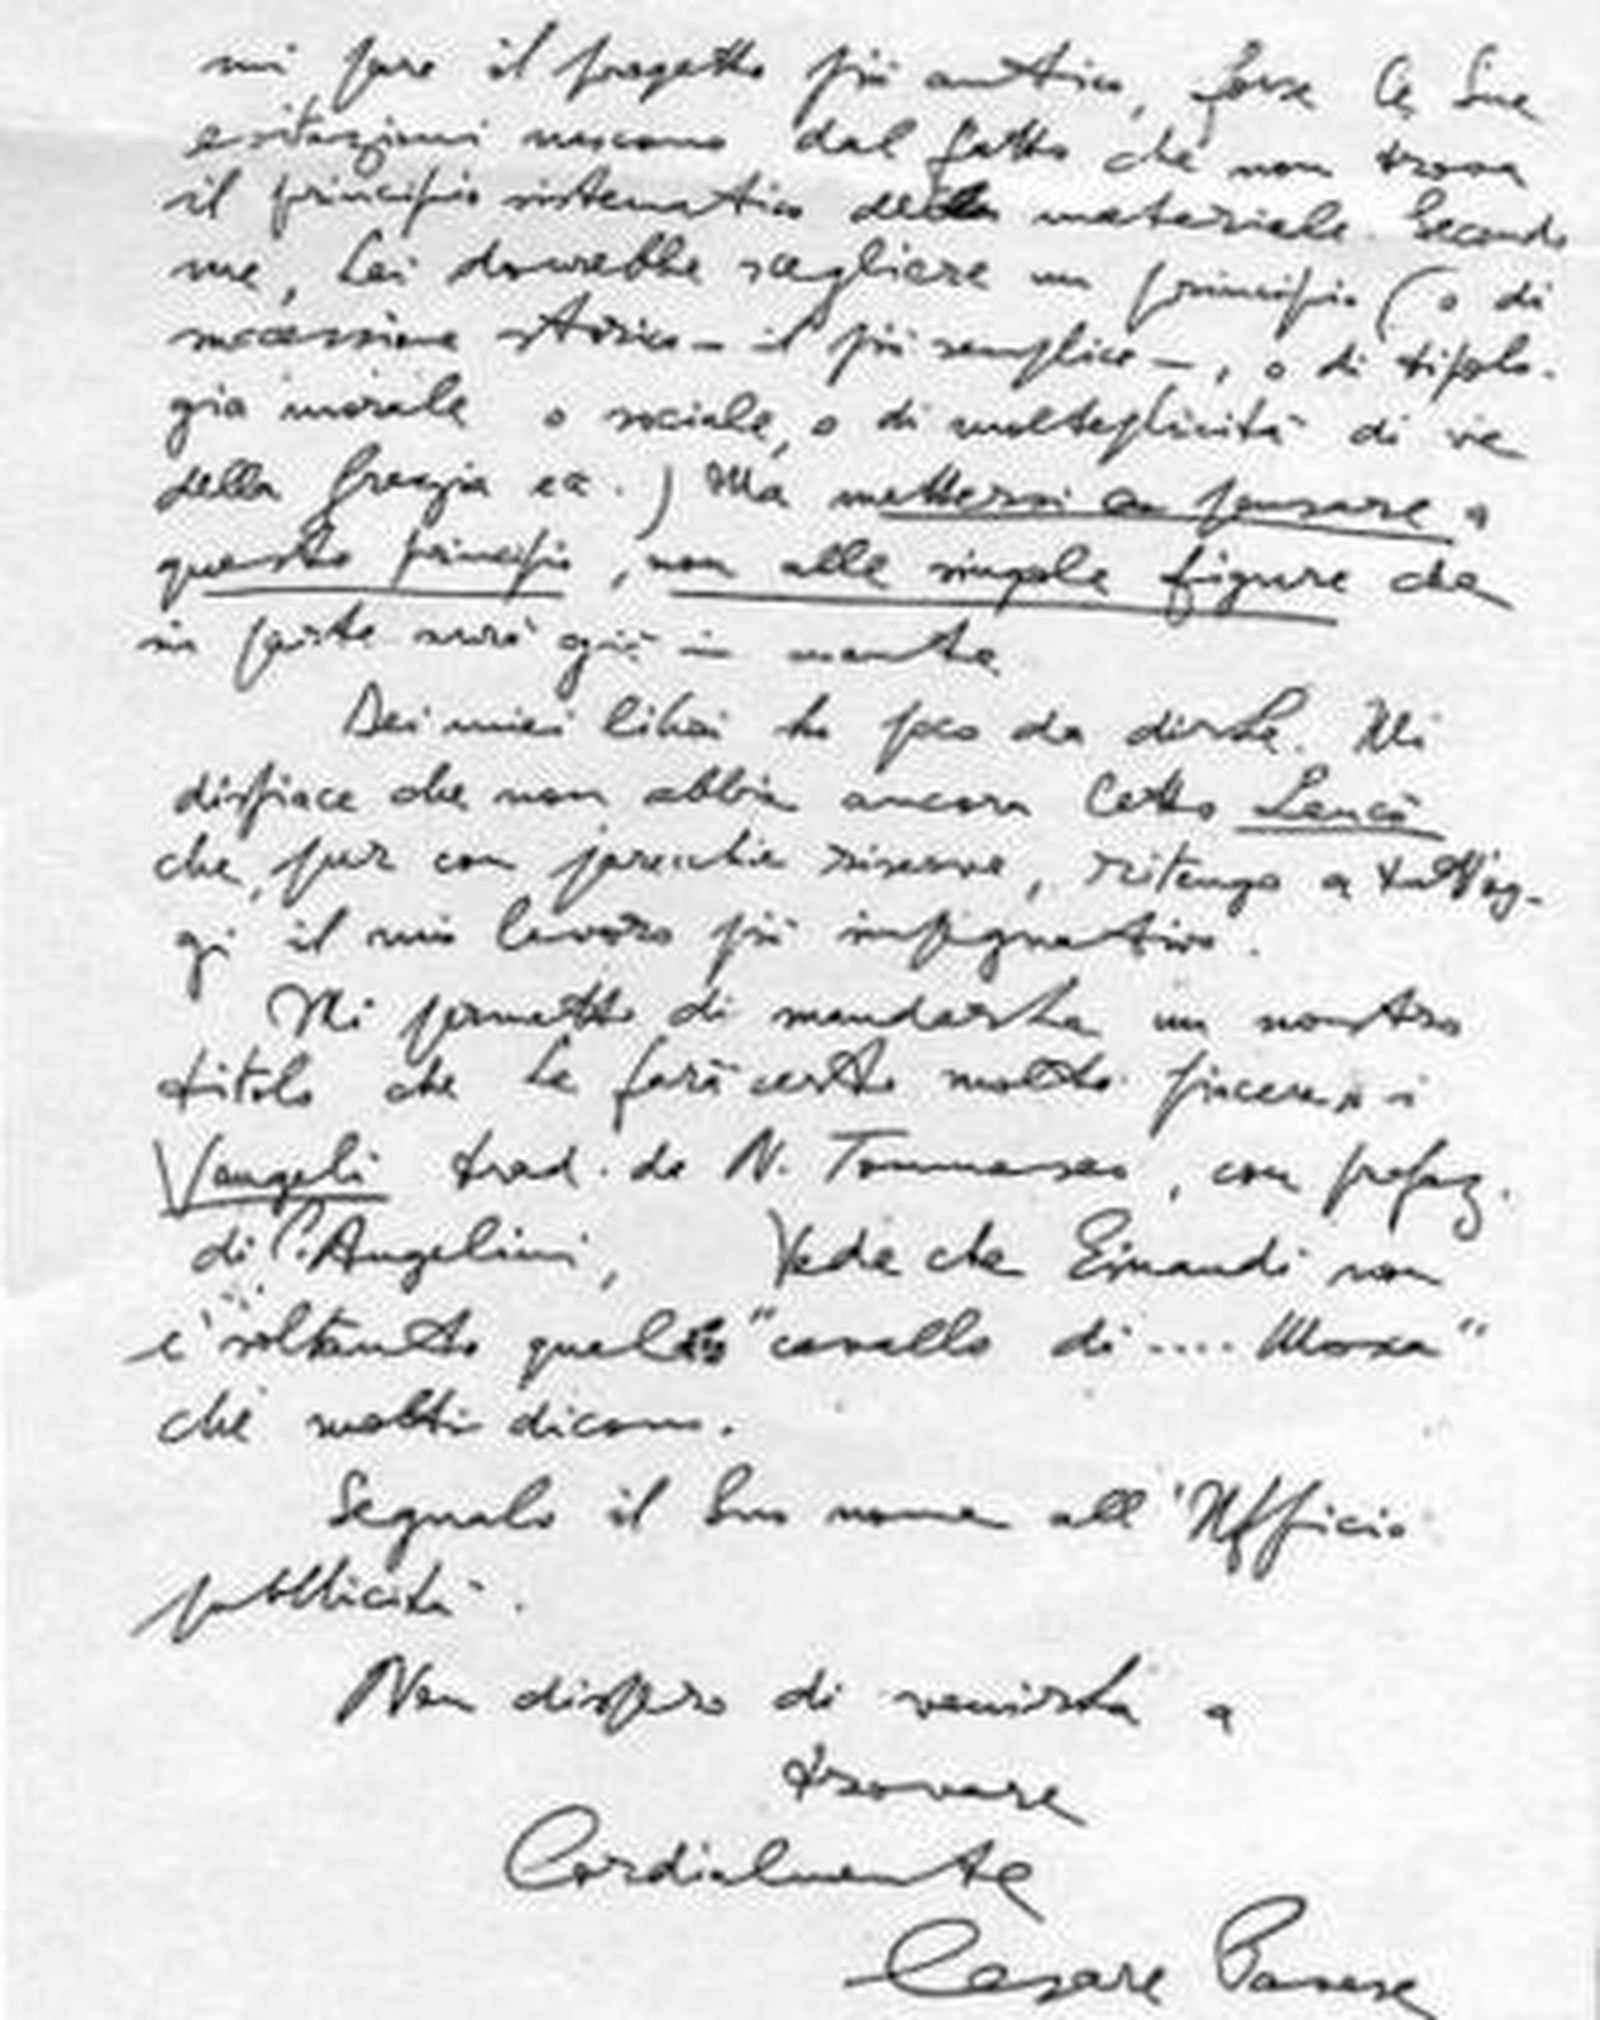 mi pare il progetto più antico, forse le Sue
esitazioni nascono dal fatto che non trova
il principio sistematico della materiale. Secondo
me, Lei dovrebbe scegliere un principio (o di
successione storica – il più semplice –, o di tipolo-
gia morale o sociale, o di molteplicità di vie
della Grazia ec.) Ma mettersi a pensare a
questo principio, non alle singole figure che
in parte avrà già in mente.
Dei miei libri ho poco da dirLe. Mi
dispiace che non abbia ancora letto Leucò
che, pur con parecchie riserve, ritengo a tutt'og-
gi il mio lavoro più impegnativo.
Mi permetto di mandarLe un nostro
titolo che Le farà certo molto piacere: i
Vangeli trad. da N. Tommaseo, con prefaz.
di C. Angelini, Vede che Einaudi non
è soltanto quello "cavallo di .... Mosca"
che molti dicono.
Segnalo il Suo nome all'Ufficio
pubblicità.
Non dispero di venirLa a
trovare
Cordialmente
Cesare Pavese